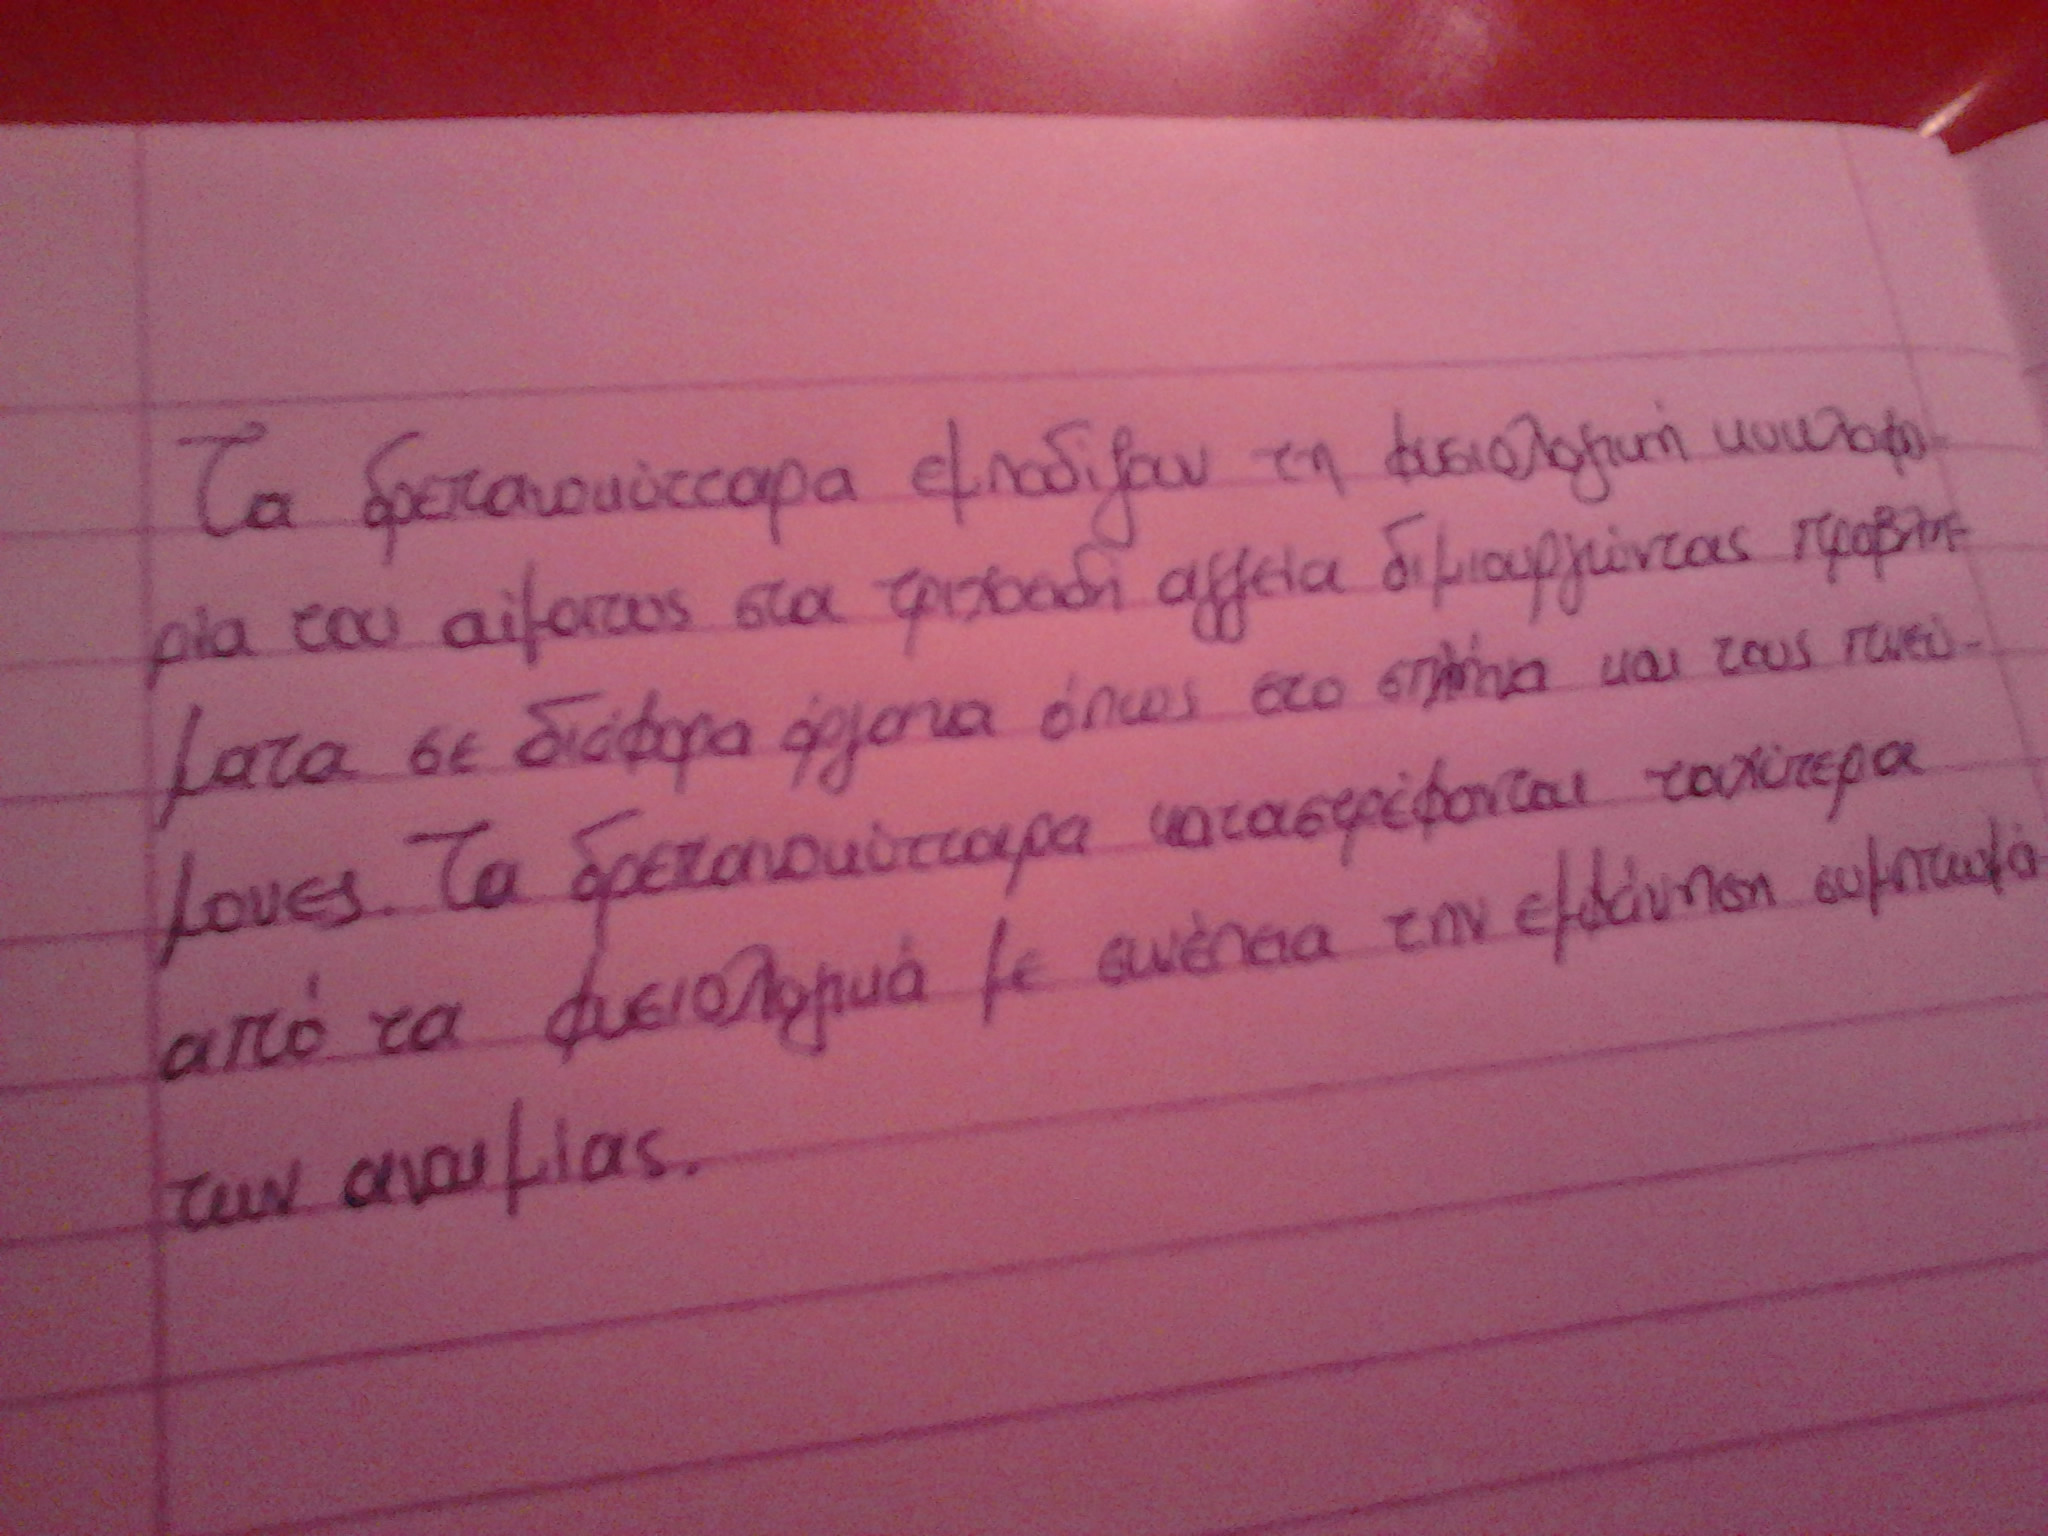 Τα δρεπανοκύτταρα εμποδίζουν τη φυσιολογική κυκλοφο-
ρία του αίματος στα τριχοειδή αγγεία διμιουργώντας προβλή-
ματα σε διάφορα όργανα όπως στο σπλήνα και τους πνεύ-
μονες. Τα δρεπανοκύτταρα καταστρέφονται ταχύτερα
από τα φυσιολογικά με συνέπεια την εμφάνηση συμπτωμά-
των αναιμίας.